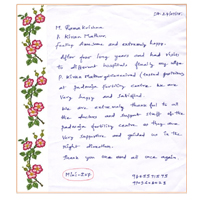 M. Rama Krishna
P. Kiran Mathur
feeling Awesome and extremely happy.
After four long years and had visits
to different hospitals finally my wife
P. Kiran Mathur got conceived (tested positive)
at padmaja fertility centre. we are
very happy and satisfied.
We are extremely thankful to all
the doctors and support staff of the
padmaja fertility centre. as they are
very supportive and guided us in the
right direction.
Thank you one and all once again.